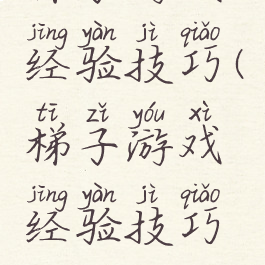 jīng yàn jì qiǎo
经验技巧(
tī zǐ yóu xì
梯子游戏
jīng yàn jì qiǎo
经验技巧